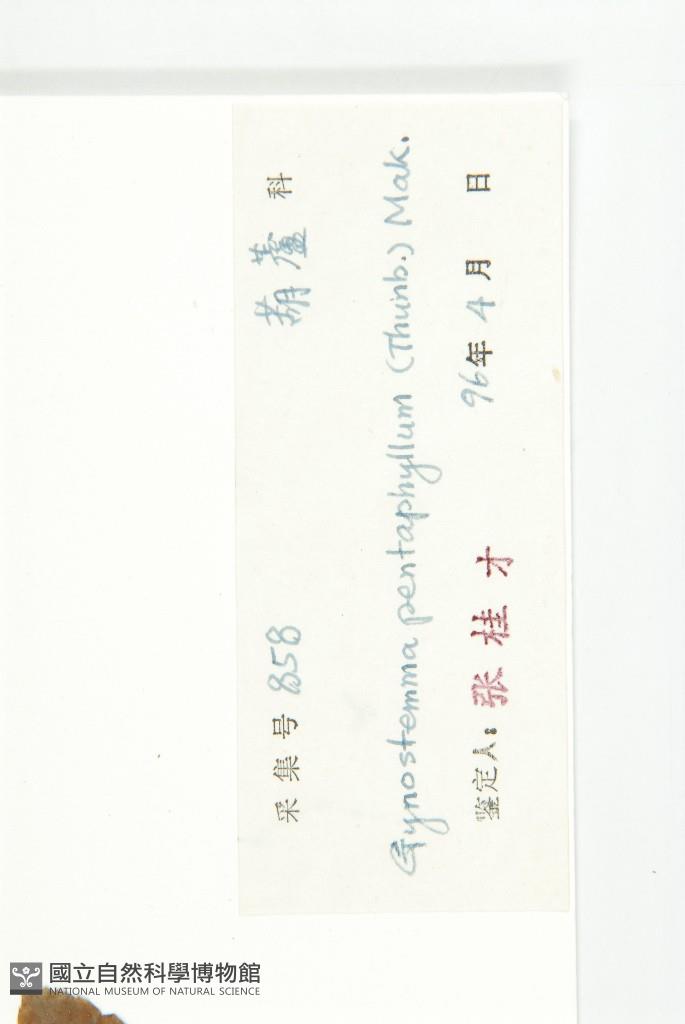 采集号 858 葫蘆 科
Gynostemma pentaphyllum (Thunb.) Mak.
鉴定人: 张桂才 96年 4 月 日
國立自然科學博物館
NATIONAL MUSEUM OF NATURAL SCIENCE